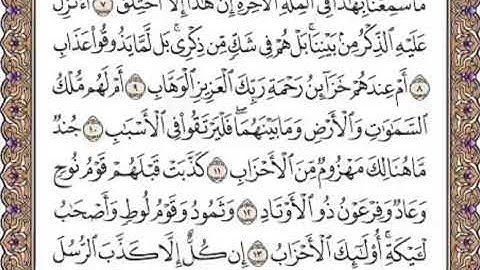 مَا سَمِعْنَا بِهَٰذَا فِي ٱلْمِلَّةِ ٱلْأٓخِرَةِ إِنْ هَٰذَآ إِلَّا ٱخْتِلَٰقٌ ٧ أَءُنزِلَ
عَلَيْهِ ٱلذِّكْرُ مِنۢ بَيْنِنَا ۚ بَلْ هُمْ فِي شَكٍّ مِّن ذِكْرِي ۖ بَل لَّمَّا يَذُوقُوا۟ عَذَابِ
٨ أَمْ عِندَهُمْ خَزَآئِنُ رَحْمَةِ رَبِّكَ ٱلْعَزِيزِ ٱلْوَهَّابِ ٩ أَمْ لَهُم مُّلْكُ
ٱلسَّمَٰوَٰتِ وَٱلْأَرْضِ وَمَا بَيْنَهُمَا ۖ فَلْيَرْتَقُوا۟ فِي ٱلْأَسْبَٰبِ ١٠ جُندٌ
مَّا هُنَالِكَ مَهْزُومٌ مِّنَ ٱلْأَحْزَابِ ١١ كَذَّبَتْ قَبْلَهُمْ قَوْمُ نُوحٍ
وَعَادٌ وَفِرْعَوْنُ ذُو ٱلْأَوْتَادِ ١٢ وَثَمُودُ وَقَوْمُ لُوطٍ وَأَصْحَٰبُ
لْـَٔيْكَةِ ۚ أُو۟لَٰٓئِكَ ٱلْأَحْزَابُ ١٣ إِن كُلٌّ إِلَّا كَذَّبَ ٱلرُّسُلَ